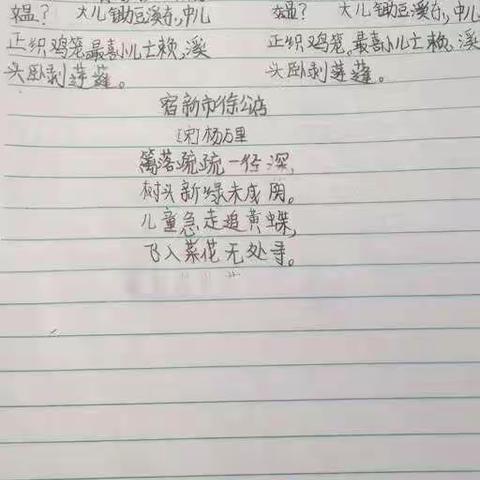 媪？ 大儿锄豆溪东，中儿 媪？ 大儿锄豆溪东，中儿
正织鸡笼。最喜小儿亡赖，溪 正织鸡笼。最喜小儿亡赖，溪
头卧剥莲蓬。 头卧剥莲蓬。
宿新市徐公店
[宋]杨万里
篱落疏疏一径深，
树头新绿未成阴。
儿童急走追黄蝶，
飞入菜花无处寻。